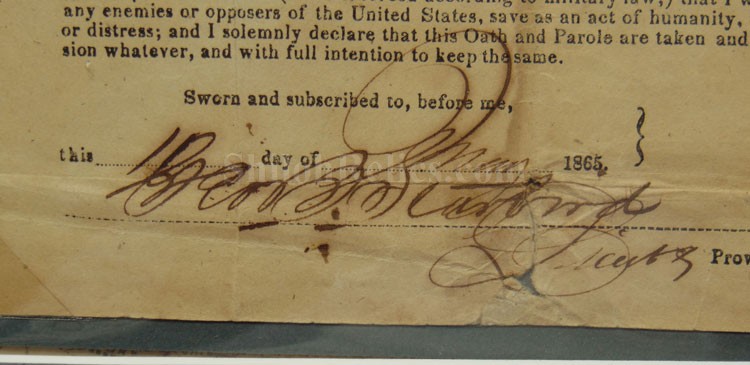 according to military law,) that I w
any enemies or opposers of the United States, save as an act of humanity,
or distress; and I solemnly declare that this Oath and Parole are taken and
sion whatever, and with full intention to keep the same.
Sworn and subscribed to, before me,
this day of May 1865,
Geo
Prov